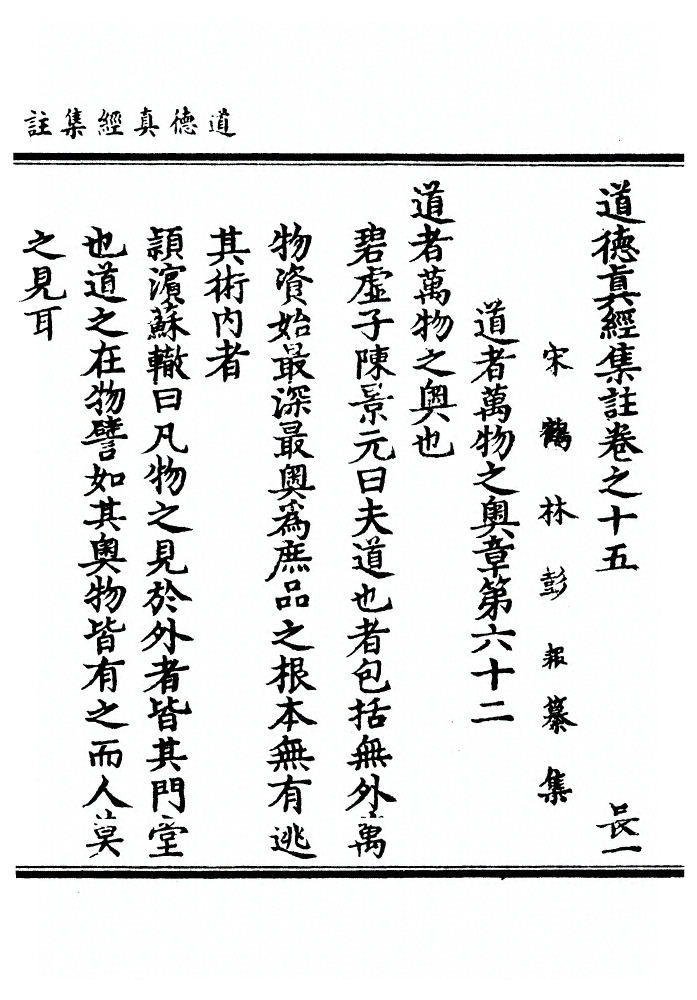 道德真經集註
道德真經集註卷之十五 長一
宋鶴林彭耜纂集
道者萬物之奧章第六十二
道者萬物之奧也
碧虛子陳景元曰夫道也者包括無外萬
物資始最深最奧爲庶品之根本無有逃
其術內者
潁濱蘇轍曰凡物之見於外者皆其門堂
也道之在物譬如其奧物皆有之而人莫
之見耳